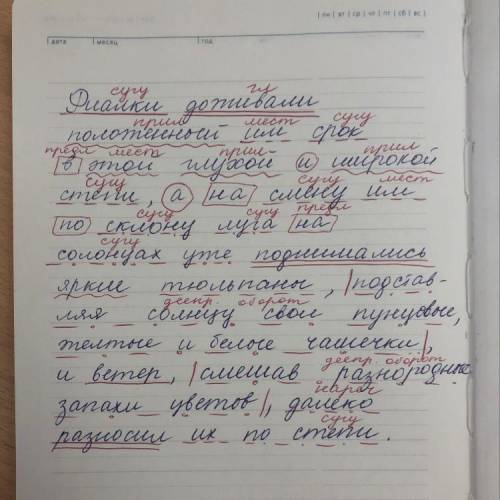 | пн | вт | ср | чт | пт | сб | вс |
дата | месяц | год
сущ гл
Фиалки доживали
прил мест сущ
положенный им срок
предл мест прил прил
в этой глухой и широкой
сущ сущ мест
степи, а на смену им
сущ сущ предл
по склону луга на
сущ
солонцах уже поднимались
яркие тюльпаны, |подстав-
деепр. оборот
ляя солнцу свои пунцовые,
желтые и белые чашечки|,
деепр. оборот
и ветер, |смешав разнородные
нареч
запахи цветов|, далеко
сущ
разносил их по степи.